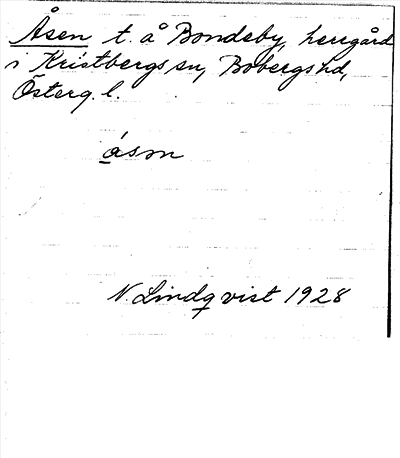 Åsen t. å Bondeby, herrgård
i Kristbergs sn, Bobergs hd,
Österg. l.
ásm
N. Lindqvist 1928